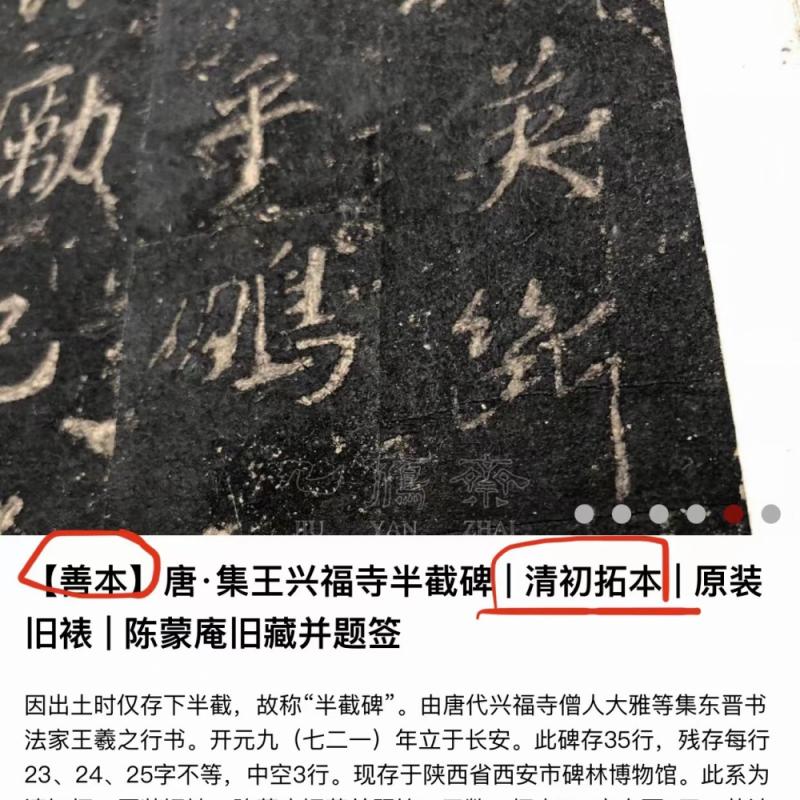 英
乎鵬
YAN ZHAI
【善本】唐·集王兴福寺半截碑 | 清初拓本 | 原装
旧裱 | 陈蒙庵旧藏并题签
因出土时仅存下半截，故称“半截碑”。由唐代兴福寺僧人大雅等集东晋书
法家王羲之行书。开元九（七二一）年立于长安。此碑存35行，残存每行
23、24、25字不等，中空3行。现存于陕西省西安市碑林博物馆。此系为